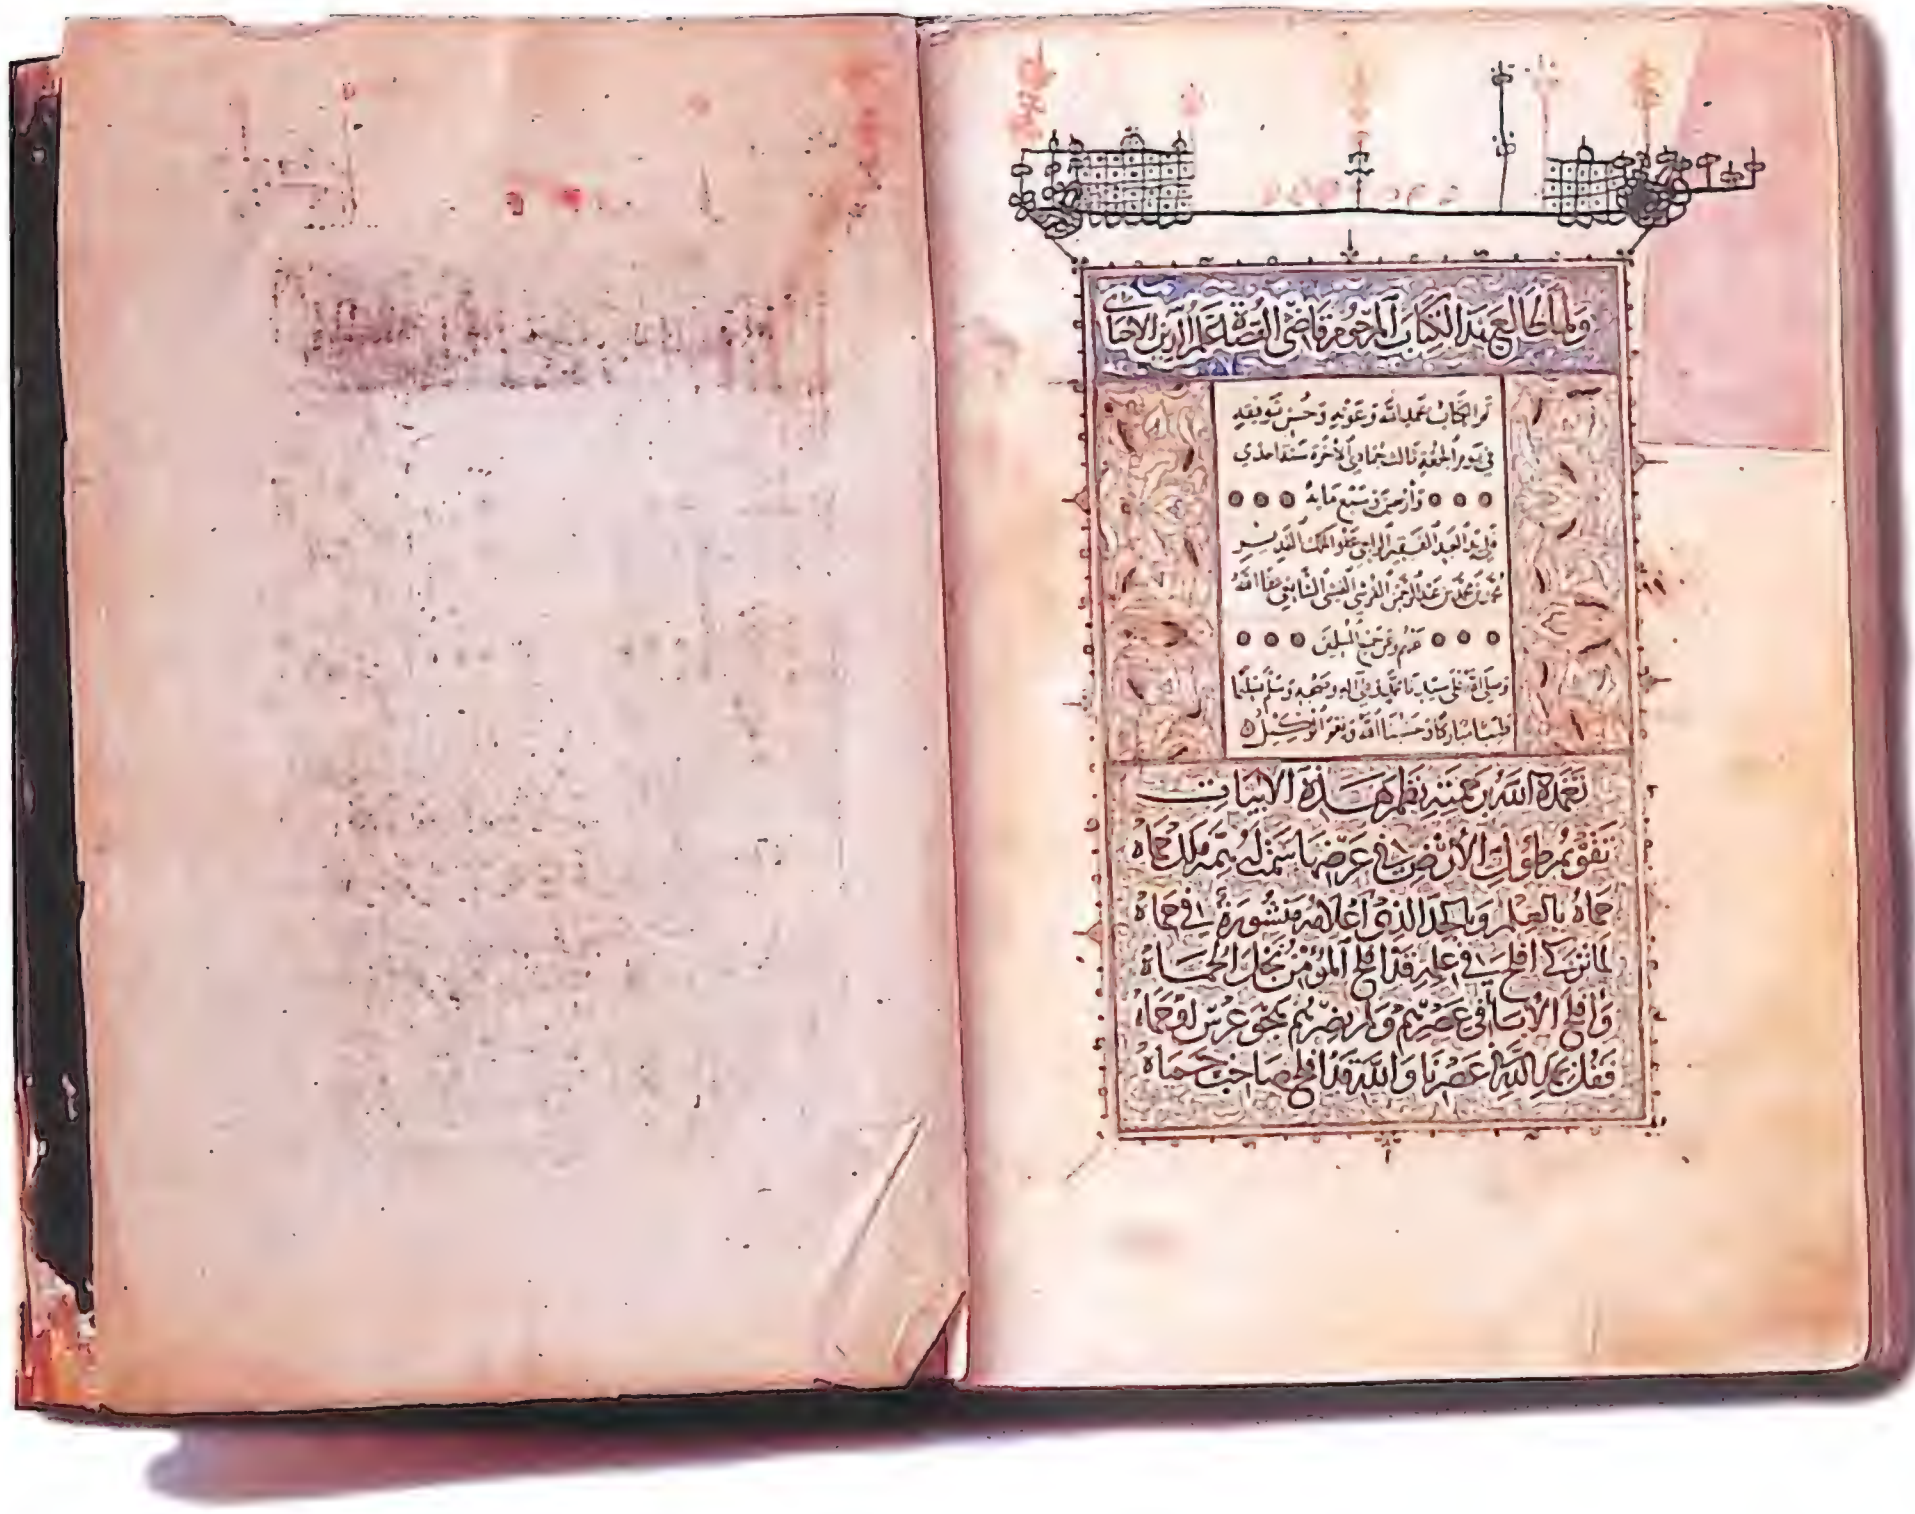 ولما طالع هذا الكتاب المرحوم قاضي القضاة علم الدين الاخنائي
تم الكتاب بحمد الله وعونه وحسن توفيقه
في يوم الجمعة ثالث جمادى الآخرة سنة احدى
وأربعين وسبع مايه
على يد العبد الفقير الراجي عفو الملك القدير
محمد بن عبد الرحمن القرشي الشافعي عفا الله
عنهم وعن جميع المسلمين
وصلى الله على سيدنا محمد وعلى آله وصحبه وسلم تسليما
طيبا مباركا وحسبنا الله ونعم الوكيل
تغمده الله برحمته نظم هذه الابيات
تقويم طول الأرض في عرضها سمت له همة ملك حماه
حماه بالعلم وبالجد الذي أعلامه منشورة في حماه
لما تزكى افلح في علمه قد افلح المؤمن نجل الحماه
وافلح الانسا في عصرهم ولم يضرهم نحو عرس لو حماه
فقل بحمد الله في عصرنا والله قد افلح صاحب حماه